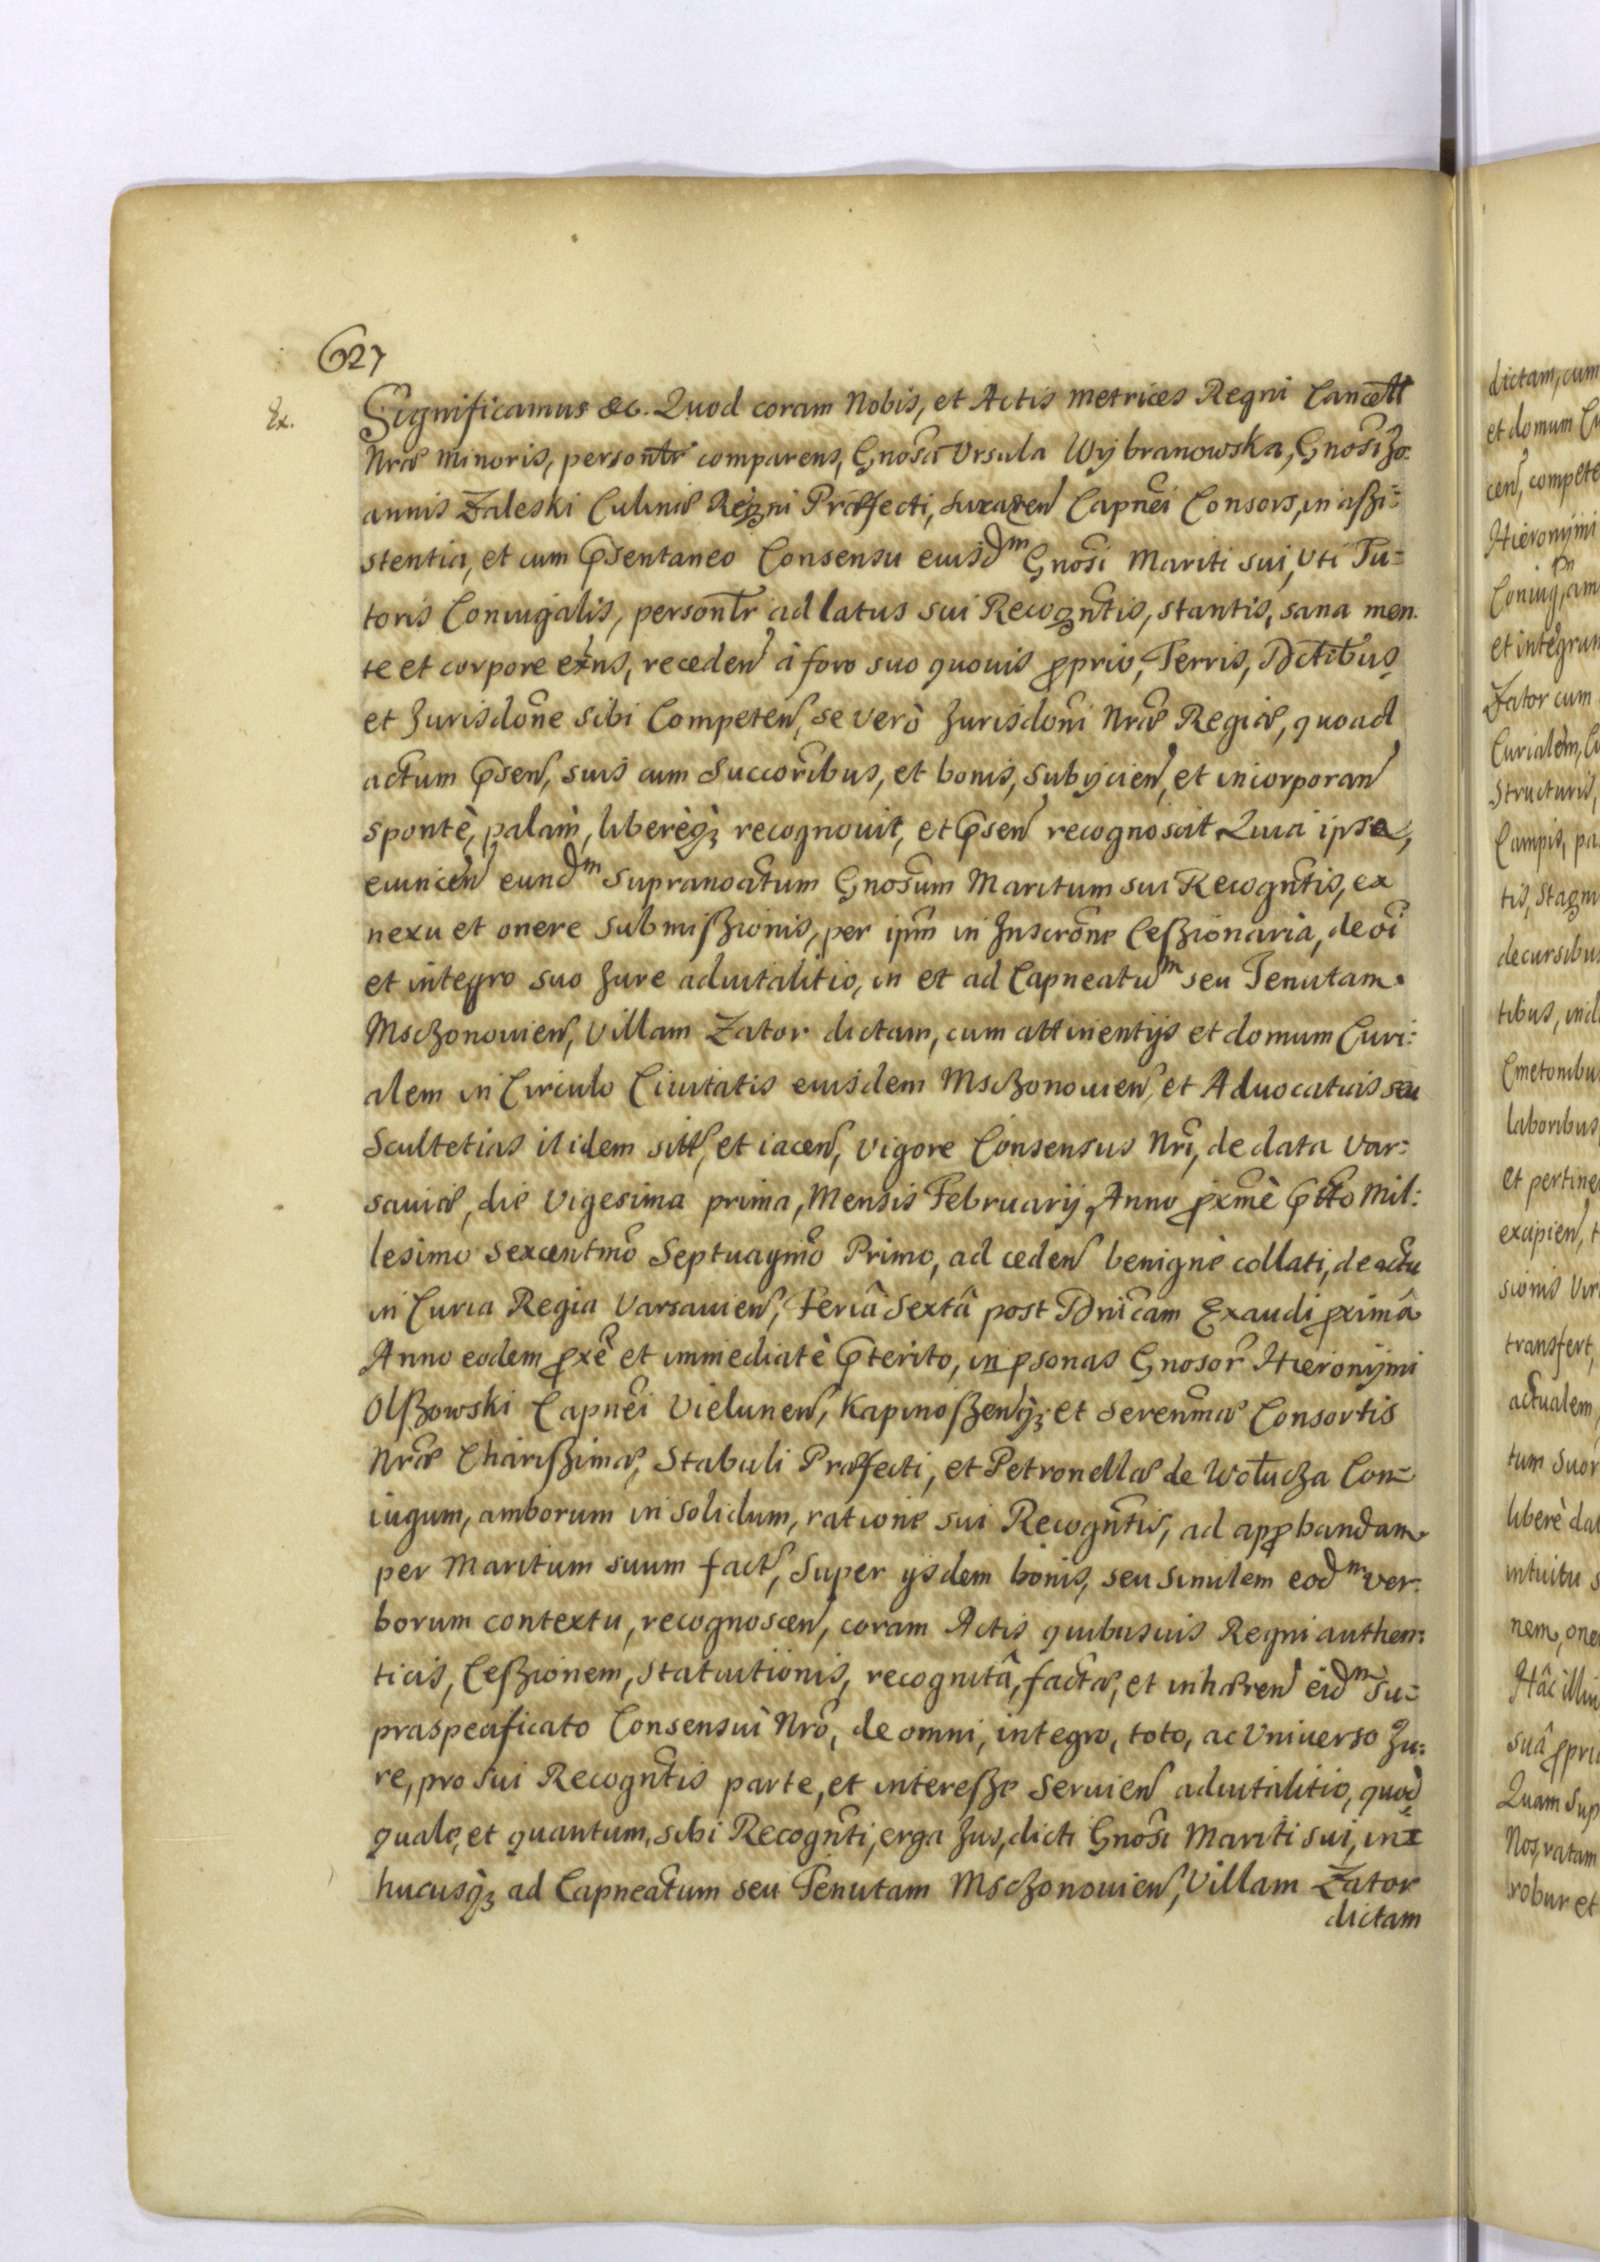 627
Ex.
Significamus &c. Quod coram Nobis, et Actis metrices Regni Cancell
Nræ minoris, personlr comparens, Gnosa Vrsula Wybranowska, Gnosi Jo:
annis Zaleski Culinæ Regni Præfecti, Capnei Consors, in aßi:
stentia, et cum Psentaneo Consensu eiusdm Gnosi Mariti sui, Vti Tu:
toris Coniugalis, personlr ad latus sui Recogntis, stantis, sana men:
te et corpore exns, receden à foro suo quouis pprio, Terris, Dctibus,
et Jurisdone sibi Competen, se verò Jurisdoni Nræ Regiæ, quoad
actum Psen, suis cum Succoribus, et bonis, subijcien, et incorporan
spontè, palàm, liberèq; recognouit, et Psen recognoscit Quia ipsa,
euincen eundm Supranoatum Gnosum Maritum sui Recogntis, ex
nexu et onere Submißionis, per ipm in Inscrone Ceßionaria, de oi
et integro suo Jure aduitalitio, in et ad Capneatum seu Tenutam
Msczonouien, Villam Zator dictam, cum attinentijs et domum Curi:
alem in Circulo Ciuitatis eiusdem Msczonouien, et Aduocatias seu
Scultetias itidem sitt, et iacen, vigore Consensus Nri, de data Var:
sauiæ, die Vigesima prima, Mensis Februarij, Anno pxmè Ptto Mil:
lesimo sexcentmo Septuagmo Primo, ad ceden benigne collati, de actu
in Curia Regia Varsauien, Feriâ Sextâ post Dnicam Exaudi proximâ
Anno eodem pxe et immediatè Pterito, in psonas Gnosor Hieronymi
Olßowski Capnei Vielunen, Kapinoßenq; et Serenmæ Consortis
Nræ Charißimæ, Stabuli Præfecti, et Petronellæ de Wołucza Con:
iugum, amborum in solidum, ratione sui Recogntis, ad approbandam
per Maritum suum fact, Super ijsdem bonis, seu similem eodm ver:
borum contextu, recognoscen, coram Actis quibusuis Regni authen:
ticis, Ceßionem, statuitionis, recognitâ, factæ, et inhæren eidm Su:
praspecificato Consensui Nro, de omni, integro, toto, ac Vniuerso Ju:
re, pro sui Recogntis parte, et intereße Seruien aduitalitio, quod
quale, et quantum, sibi Recognti, erga Jus, dicti Gnosi Mariti sui, in
hucusq; ad Capneatum seu Tenutam Msczonouien, Villam Zator
dictam
dictam, cum
et domum Cu
cen, compete
Hieronymi
Coniug, am
et integrum
Zator cum
Curialem, C
Structuris,
Campis, pa
tis, Stagni
decursibus
tibus, incl
Cmetonibu
laboribus
et pertine
excipien, t
sionis Vir
transfert,
actualem,
tum Suor
liberè dat
intuitu s
nem, one
Hâc illiu
suâ ppriâ
Quam Sup
Nos, ratam
robur et